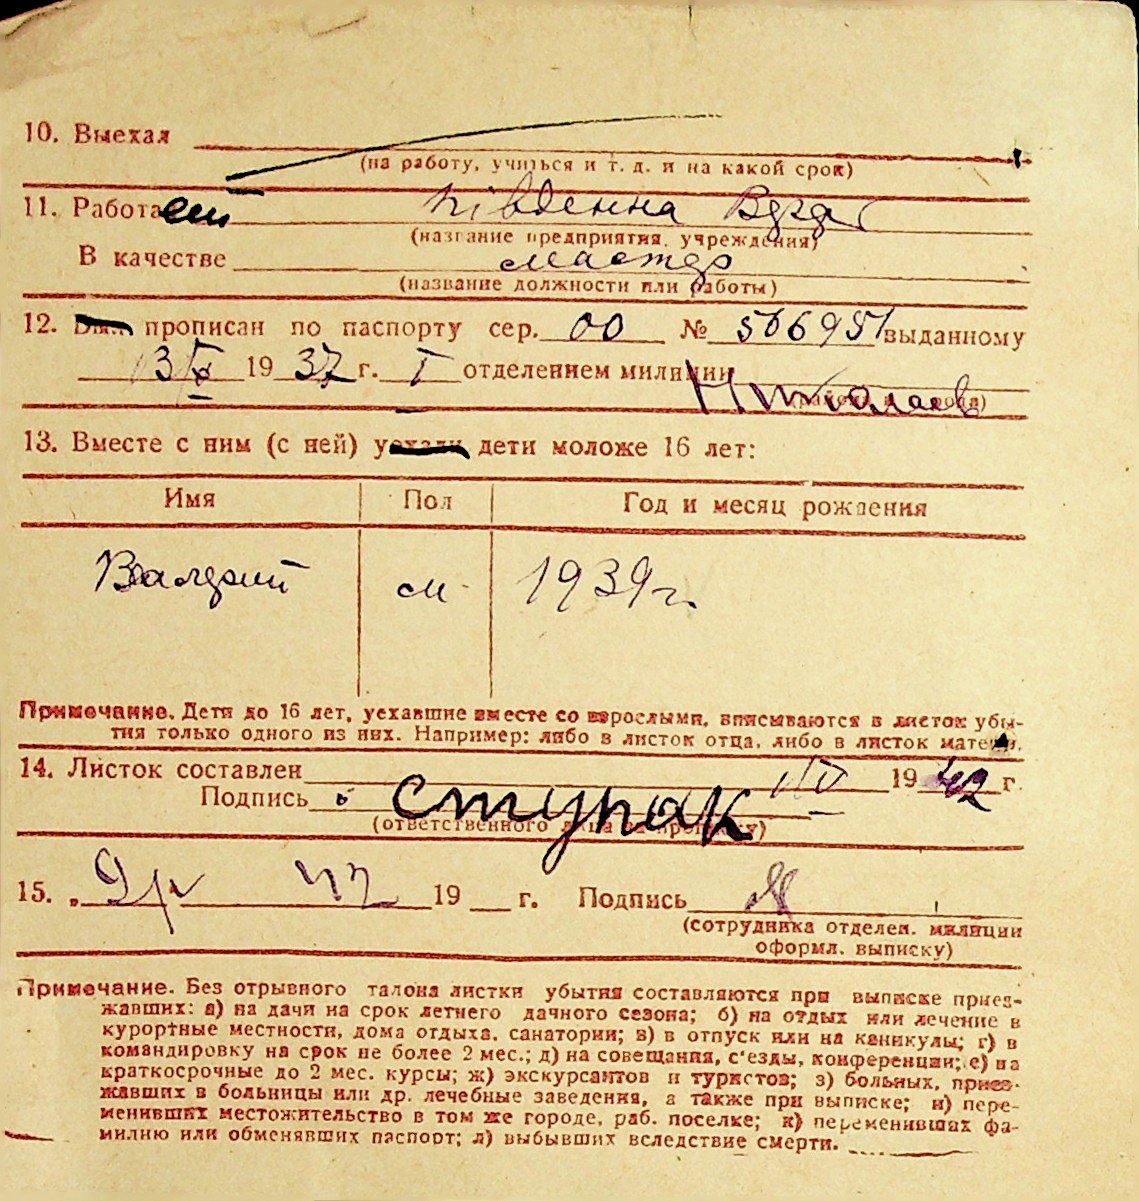 10. Выехал
(на работу, учиться и т. д. и на какой срок)
11. Работает Південна Верф
(название предприятия, учреждения)
В качестве мастер
(название должности или работы)
12. Был прописан по паспорту сер. ОО № 566951 выданному
13/X 1937 г. I отделением милиции Николаев
13. Вместе с ним (с ней) уехали дети моложе 16 лет:
Имя Пол Год и месяц рождения
Валерий м 1939 г.
Примечание. Дети до 16 лет, уехавшие вместе со взрослыми, вписываются в листок убы-
тия только одного из них. Например: либо в листок отца, либо в листок матери.
14. Листок составлен 1/IV 1942 г.
Подпись Ступак
(ответственного лица за прописку)
15. 42 19 г. Подпись
(сотрудника отделен. милиции
оформл. выписку)
Примечание. Без отрывного талона листки убытия составляются при выписке приез-
жавших: а) на дачи на срок летнего дачного сезона; б) на отдых или лечение в
курортные местности, дома отдыха, санатории; в) в отпуск или на каникулы; г) в
командировку на срок не более 2 мес.; д) на совещания, с'езды, конференции; е) на
краткосрочные до 2 мес. курсы; ж) экскурсантов и туристов; з) больных, приез-
жавших в больницы или др. лечебные заведения, а также при выписке; и) пере-
менивших местожительство в том же городе, раб. поселке; к) переменивших фа-
милию или обменявших паспорт; л) выбывших вследствие смерти.